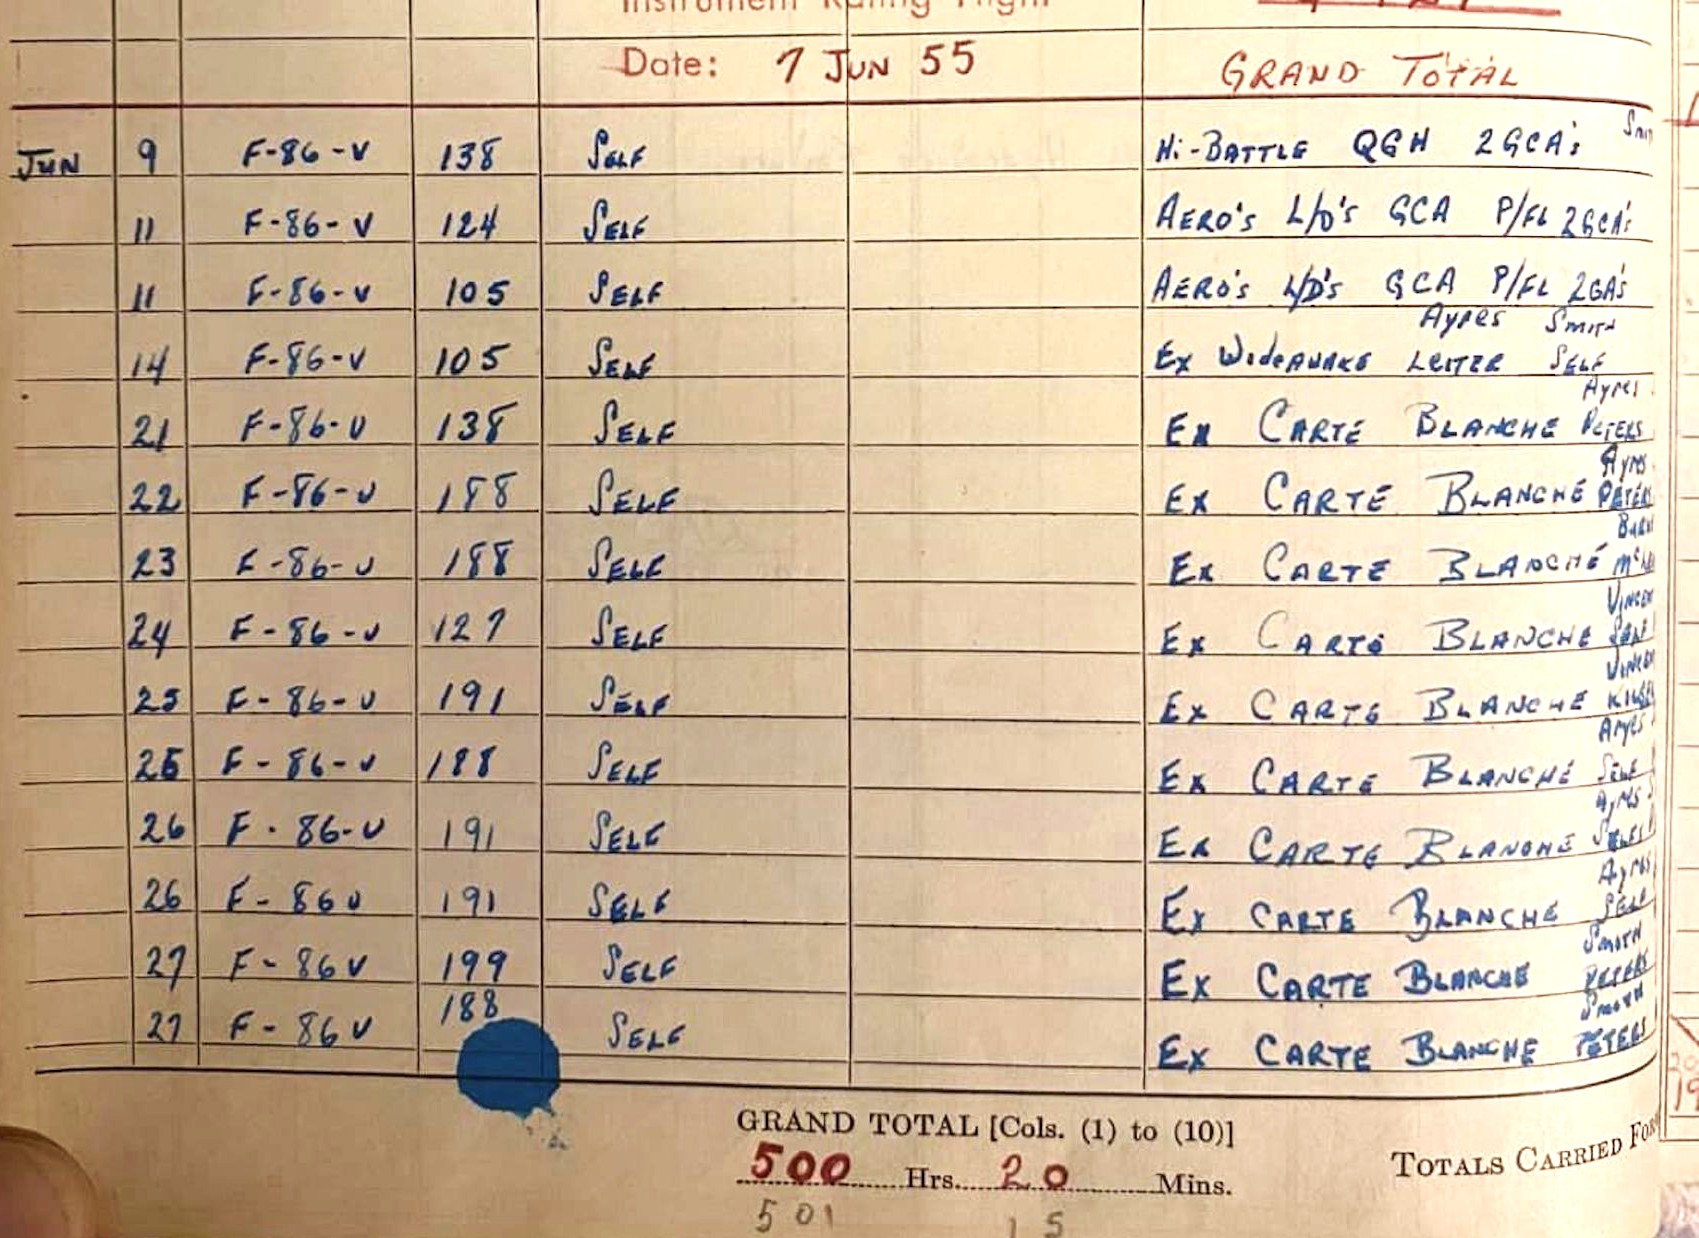 Instrument Rating Flight
Date: 7 JUN 55 GRAND TOTAL
JUN 9 F-86-V 138 SELF Hi-BATTLE QGH 2GCA's
11 F-86-V 124 SELF AERO's L/D's GCA P/FL 2GCA's
11 F-86-V 105 SELF AERO's L/D's GCA P/FL 2GA's
Ayres Smith
14 F-86-V 105 SELF Ex WideAWAKE LEITER SELF
Ayres
21 F-86-V 138 SELF Ex CARTE BLANCHE PETERS
Ayres
22 F-86-V 188 SELF Ex CARTE BLANCHE PETERS
23 F-86-V 188 SELF Ex CARTE BLANCHE
24 F-86-V 127 SELF Ex CARTE BLANCHE SELF
25 F-86-V 191 SELF Ex CARTE BLANCHE
Ayres
25 F-86-V 188 SELF Ex CARTE BLANCHE SELF
Ayres
26 F-86-V 191 SELF Ex CARTE BLANCHE SELF
Ayres
26 F-86V 191 SELF Ex CARTE BLANCHE SELF
Smith
27 F-86V 199 SELF Ex CARTE BLANCHE PETERS
Smith
27 F-86V 188 SELF Ex CARTE BLANCHE PETERS
GRAND TOTAL [Cols. (1) to (10)]
500 Hrs. 20 Mins.
TOTALS CARRIED
501 15